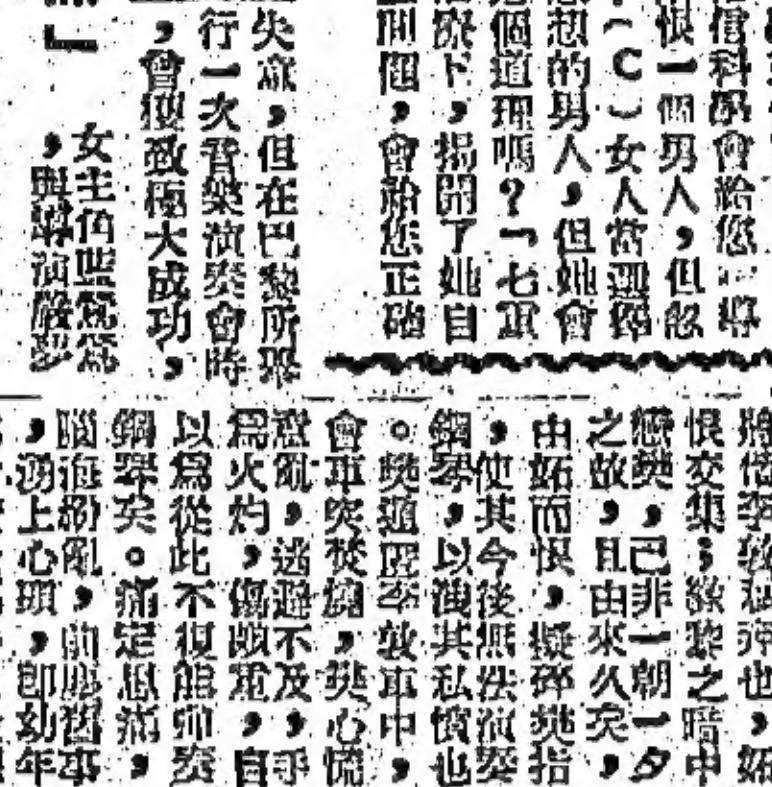 信科學會給您
恨一個男人，但
（C）女人當選擇
想的男人，但她會
個道理嗎？「七重
察下，揭開了她自
問題，會給您正確
失意，但在巴黎所舉
行一次音樂演奏會時
，曾獲致極大成功，
」女主角
，與導演嚴夢
將偕李敦私奔也，妬
恨交集；黎之暗中
戀樊，已非一朝一夕
之故，且由來久矣，
由妬而恨，擬碎樊指
，使其今後無法演奏
鋼琴，以洩其私憤也
。樊適匿李敦車中，
會車突焚燒，樊心慌
意亂，逃避不及，手
爲火灼，傷頗重，自
以爲從此不復能彈奏
鋼琴矣。痛定思痛，
腦海紛亂，前塵舊事
，湧上心頭，即幼年